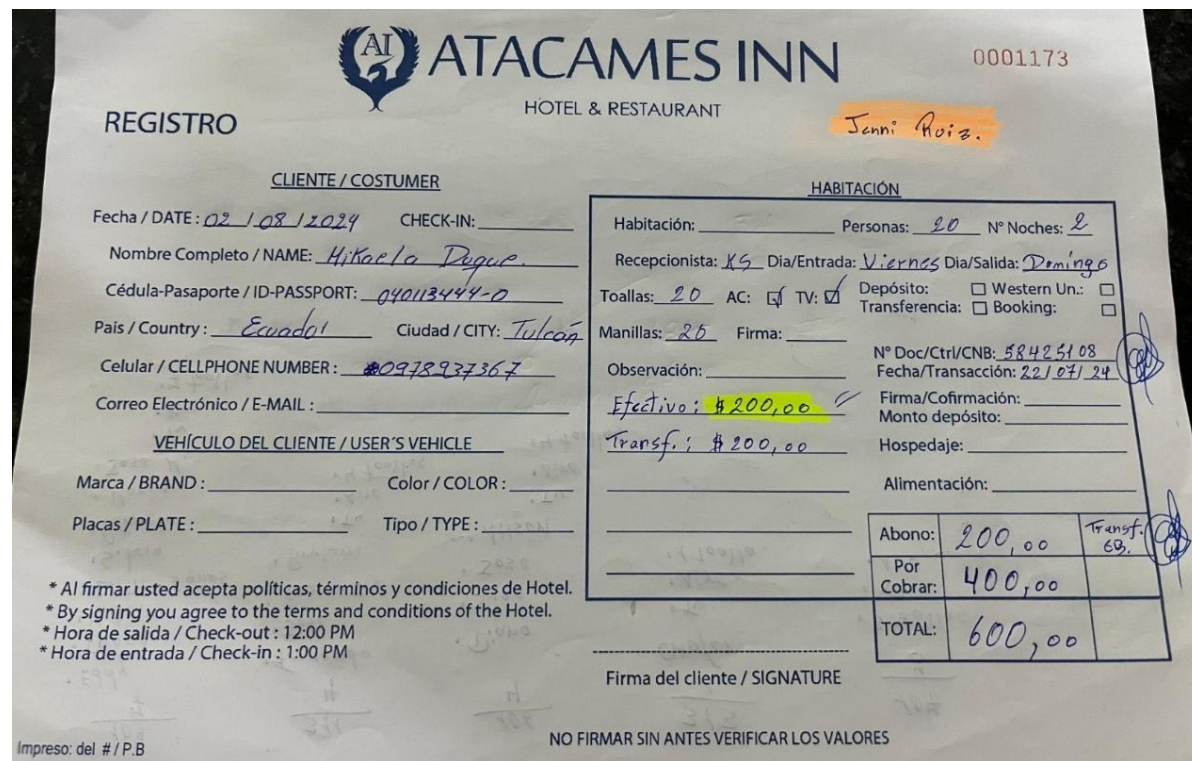 AI ATACAMES INN
HOTEL & RESTAURANT
0001173
REGISTRO
Jenni Ruiz.
CLIENTE / COSTUMER
Fecha / DATE : 02 / 08 / 2024 CHECK-IN:
Nombre Completo / NAME: Mikaela Duque.
Cédula-Pasaporte / ID-PASSPORT: 040113444-0
Pais / Country : Ecuador Ciudad / CITY: Tulcán
Celular / CELLPHONE NUMBER : 0978937367
Correo Electrónico / E-MAIL :
VEHÍCULO DEL CLIENTE / USER´S VEHICLE
Marca / BRAND : Color / COLOR :
Placas / PLATE : Tipo / TYPE :
* Al firmar usted acepta políticas, términos y condiciones de Hotel.
* By signing you agree to the terms and conditions of the Hotel.
* Hora de salida / Check-out : 12:00 PM
* Hora de entrada / Check-in : 1:00 PM
HABITACIÓN
Habitación: Personas: 20 N° Noches: 2
Recepcionista: KS Dia/Entrada: Viernes Dia/Salida: Domingo
Toallas: 20 AC: TV: Depósito: Western Un.:
Transferencia: Booking:
Manillas: 20 Firma:
N° Doc/Ctrl/CNB: 58425108
Observación: Fecha/Transacción: 22/07/24
Efectivo: $200,00 Firma/Cofirmación:
Monto depósito:
Transf.: $200,00 Hospedaje:
Alimentación:
Abono: 200,00 Transf.
Por Cobrar: 400,00
TOTAL: 600,00
Firma del cliente / SIGNATURE
Impreso: del # / P.B
NO FIRMAR SIN ANTES VERIFICAR LOS VALORES